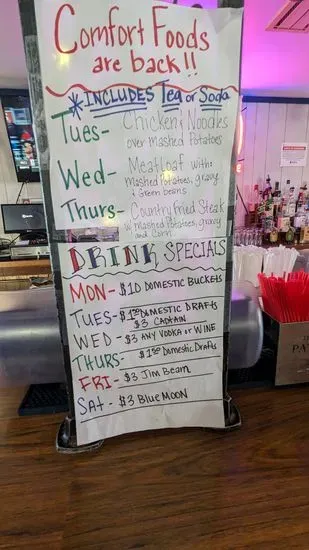 Comfort Foods
are back!!
*INCLUDES Tea or Soda
Tues- Chicken & Noodles
over Mashed Potatoes
Wed- Meatloaf with:
Mashed Potatoes, gravy
& Green beans
Thurs- Country Fried Steak
w/ Mashed Potatoes, gravy
and Corn
DRINK SPECIALS
MON- $10 DOMESTIC BUCKETS
TUES- DOMESTIC DRAFTS
$3 CAPTAIN
WED- $3 ANY VODKA or WINE
THURS- Domestic Drafts
FRI- $3 Jim Beam
SAT- $3 Blue Moon